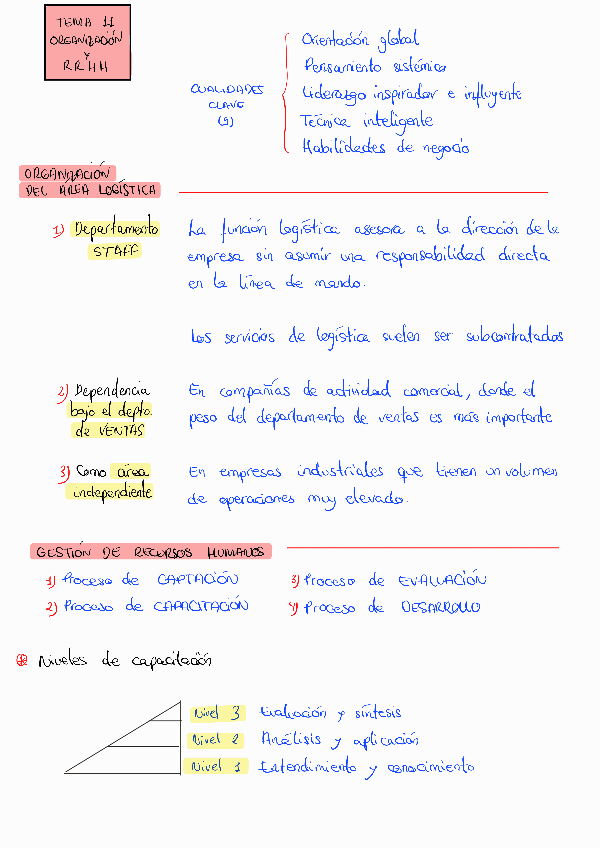 TEMA 11
ORGANIZACIÓN
Y
RRHH
CUALIDADES
CLAVE
(5)
Orientación global
Pensamiento sistémico
Liderazgo inspirador e influyente
Técnica inteligente
Habilidades de negocio
ORGANIZACIÓN
DEL ÁREA LOGÍSTICA
1) Departamento
STAFF
La función logística asesora a la dirección de la
empresa sin asumir una responsabilidad directa
en la línea de mando.
Los servicios de logística suelen ser subcontratados
2) Dependencia
bajo el depto.
de VENTAS
En compañías de actividad comercial, donde el
peso del departamento de ventas es más importante
3) Como área
independiente
En empresas industriales que tienen un volumen
de operaciones muy elevado.
GESTIÓN DE RECURSOS HUMANOS
1) Proceso de CAPTACIÓN
2) Proceso de CAPACITACIÓN
3) Proceso de EVALUACIÓN
4) Proceso de DESARROLLO
Niveles de capacitación
Nivel 3 Evaluación y síntesis
Nivel 2 Análisis y aplicación
Nivel 1 Entendimiento y conocimiento